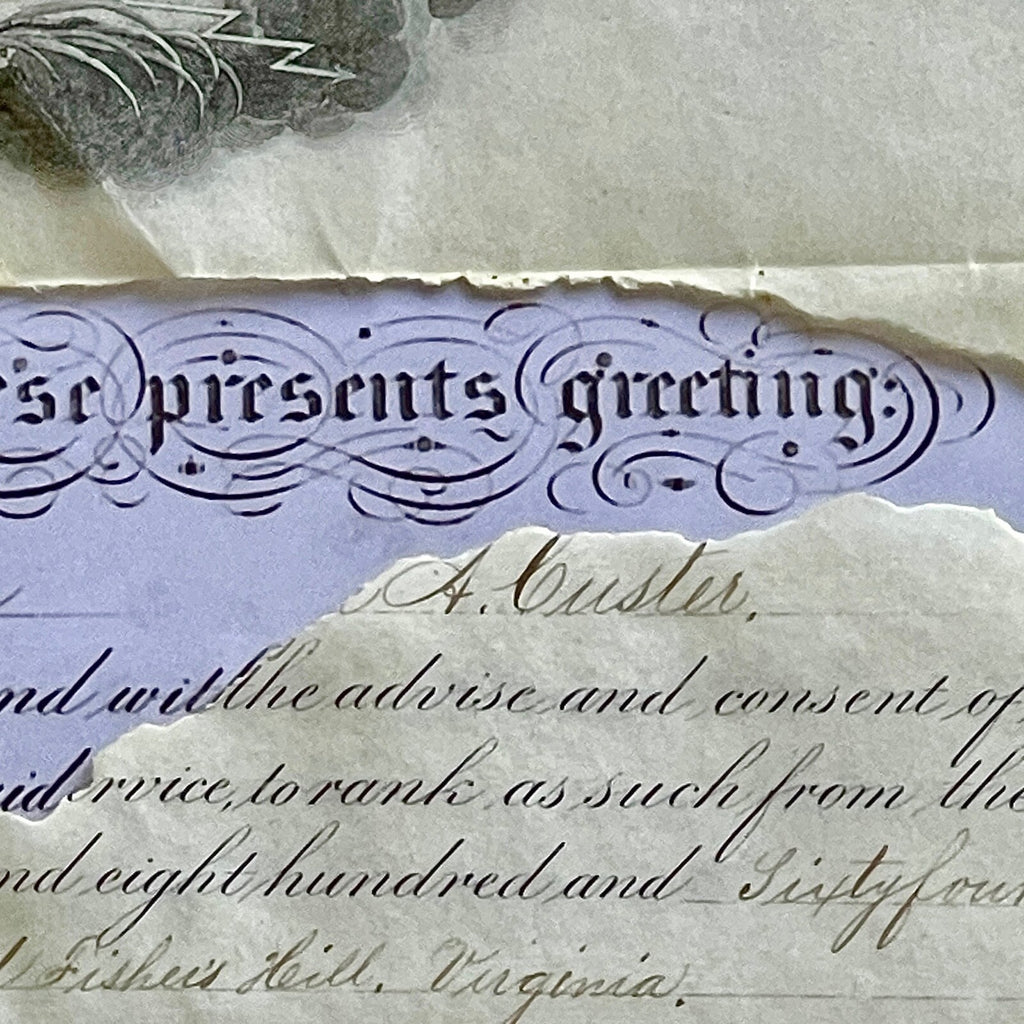 ese presents greeting:
A. Custer.
nd with the advise and consent of
id ervice, to rank as such from the
nd eight hundred and Sixtyfour
d Fisher's Hill. Virginia.